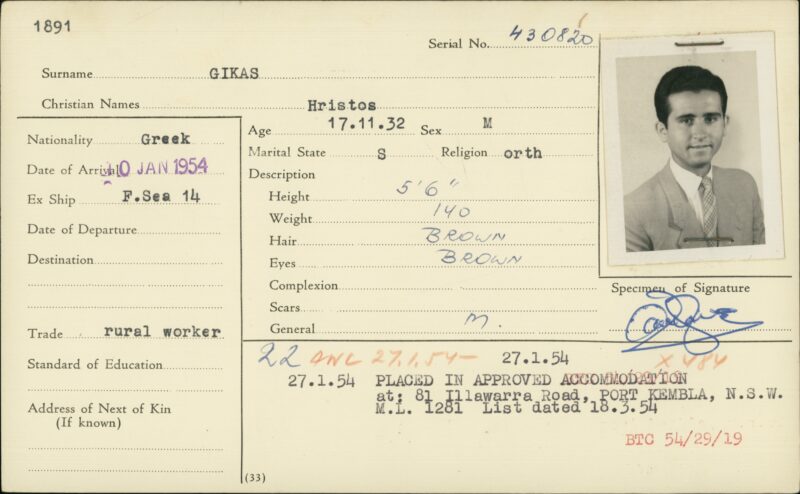 1891
Serial No. 430820
Surname GIKAS
Christian Names Hristos
Nationality Greek
Date of Arrival 10 JAN 1954
Ex Ship F.Sea 14
Date of Departure
Destination
Trade rural worker
Standard of Education
Address of Next of Kin
(If known)
Age 17.11.32 Sex M
Marital State S Religion orth
Description
Height 5'6"
Weight 140
Hair BROWN
Eyes BROWN
Complexion
Scars
General M.
Specimen of Signature
22 AWL 27.1.54 27.1.54 X 484
27.1.54 PLACED IN APPROVED ACCOMMODATION
at: 81 Illawarra Road, PORT KEMBLA, N.S.W.
M.L. 1281 List dated 18.3.54
BTC 54/29/19
(33)